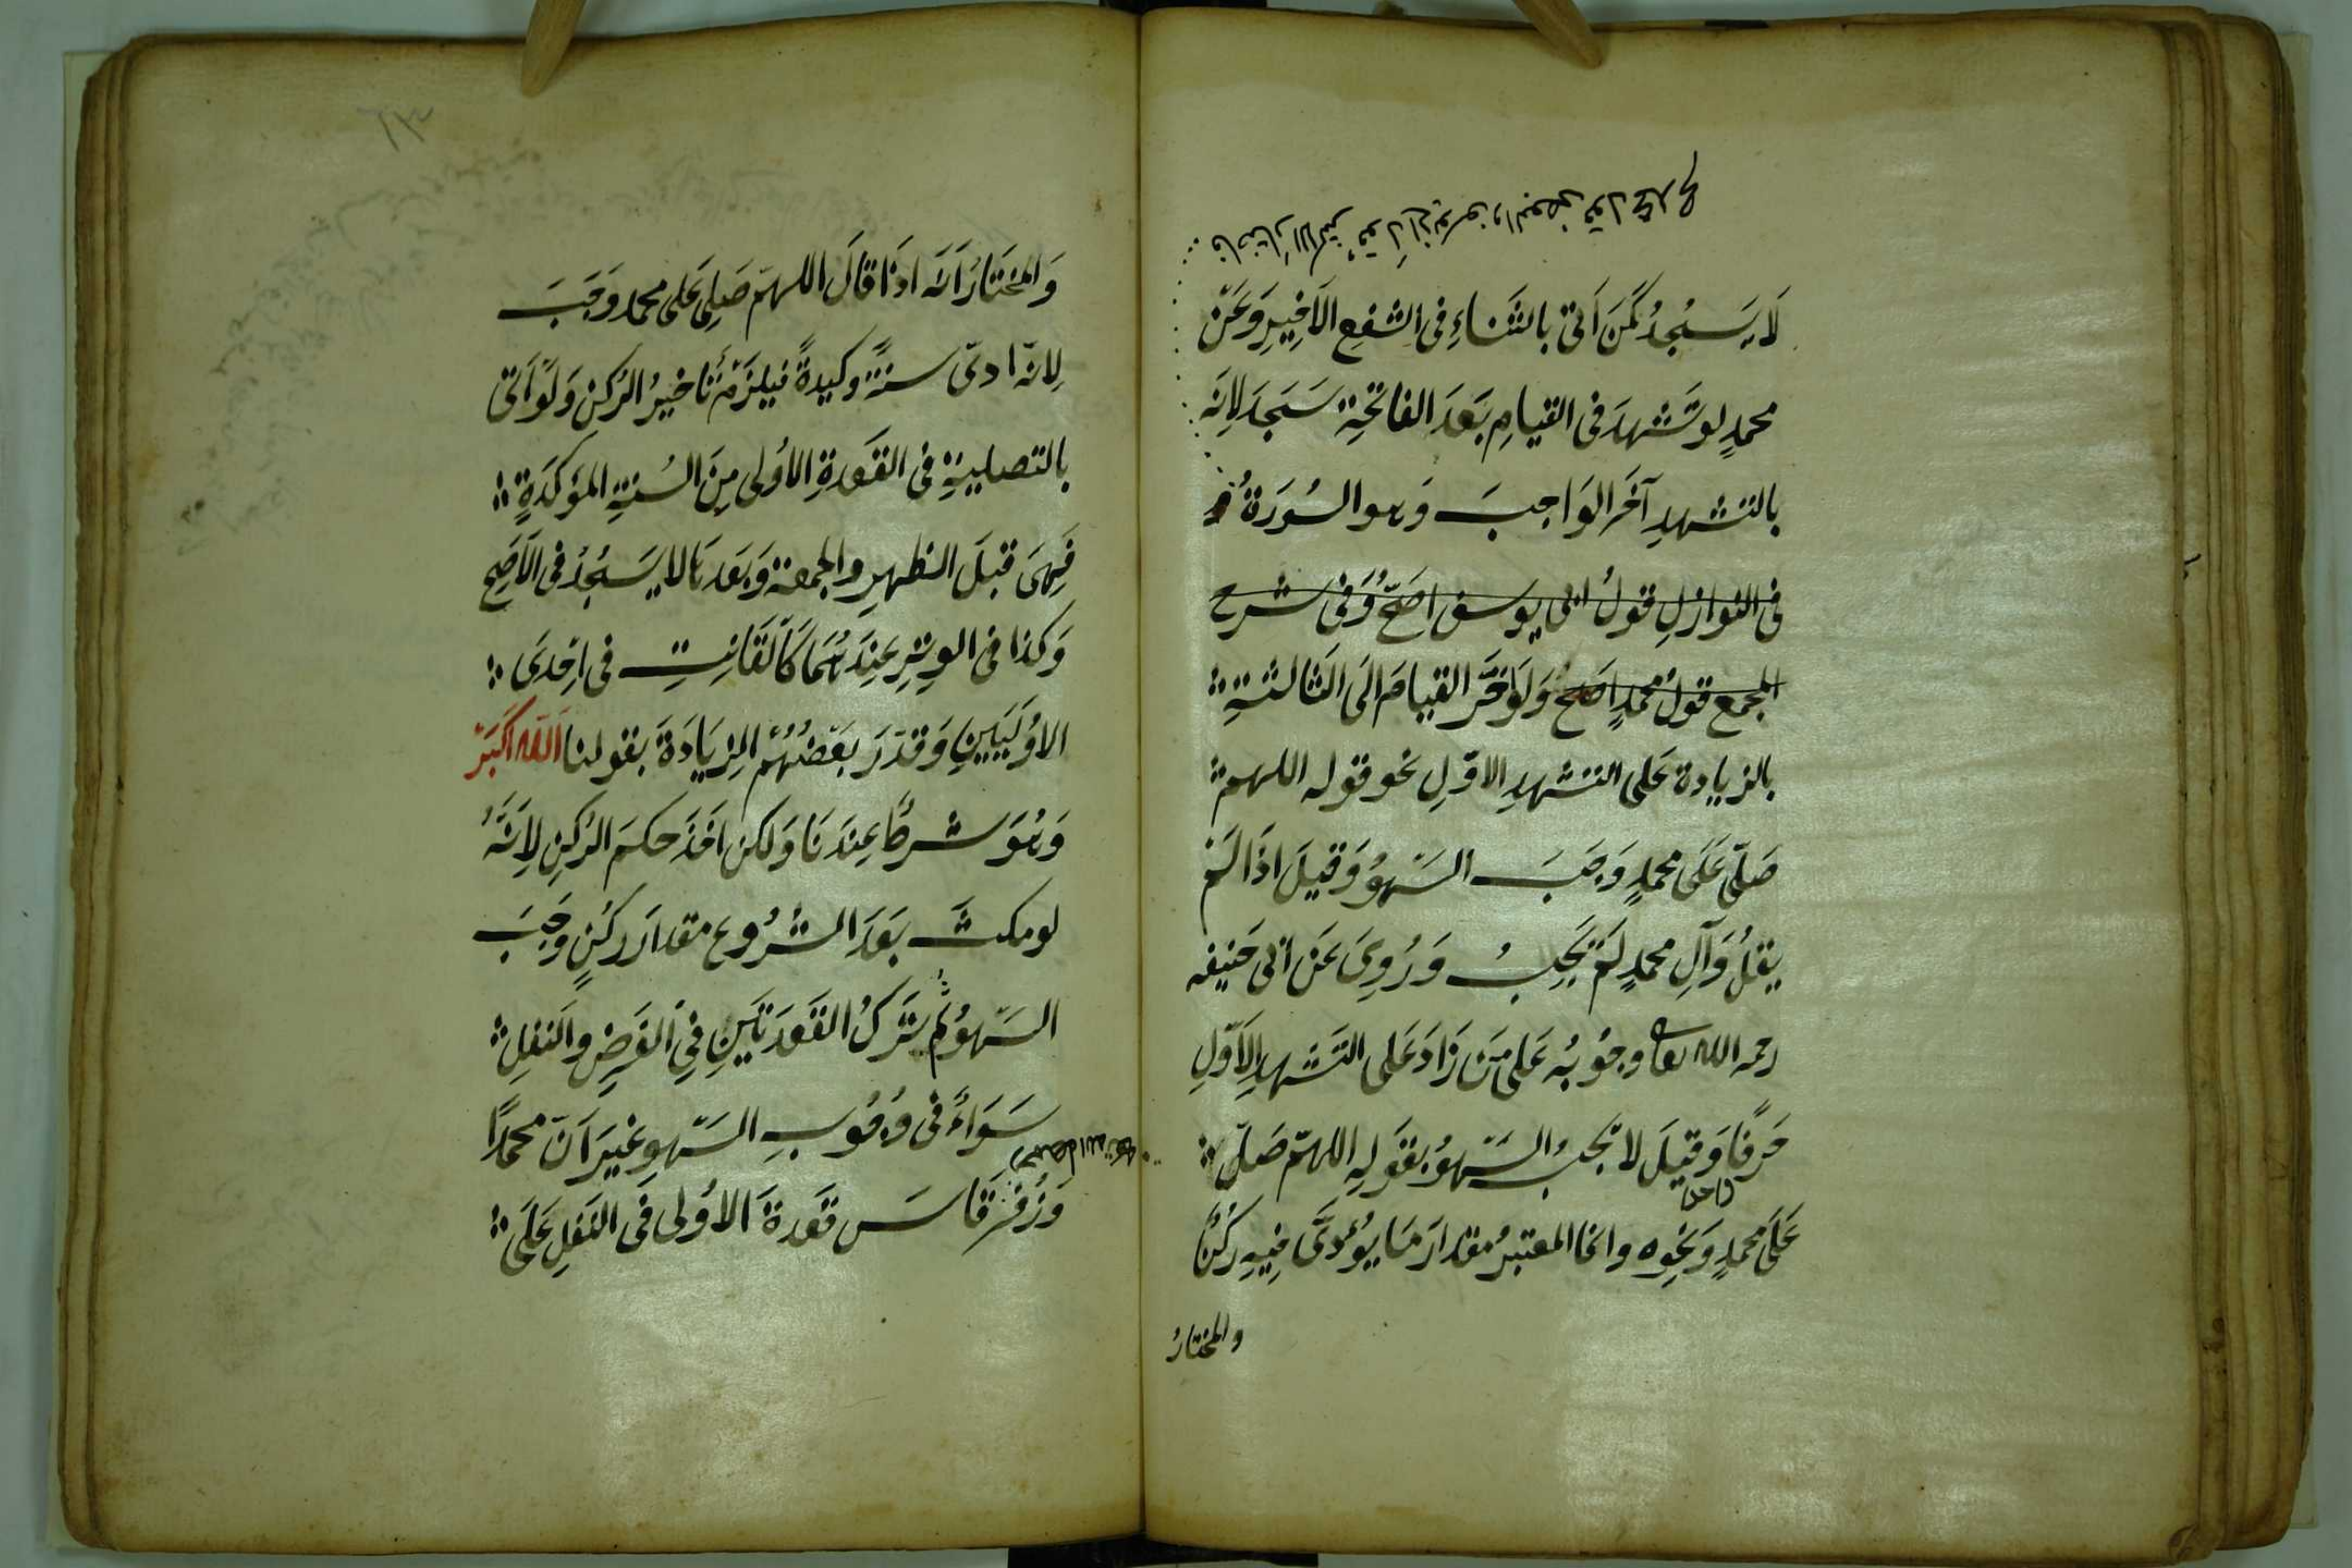 فاختار الاكثر قول ابي يوسف والبعض قول محمد
لَا يَسْجُدُ كَمَنْ اَتىٰ بالثَّنَاءِ فى الشفعِ الاَخِيرِ وَعَنْ
محمدٍ لو تَشهدَ فى القيامِ بَعْدَ الفاتحةِ سَجَدَ لِاَنَه
بالتشهدِ آخَر الوَاجبَ وَهو السُورَةُ و
فى النوازلِ قولُ ابى يوسف اصَحّ وَفى شرح
المجمع قولُ محمدٍ اَصَحُ وَلَوْ اَخَّرَ القيامَ الَى الثَالثةِ
بالزيادة عَلى التشهدِ الاوّلِ نحو قوله اللهم
صَلّى عَلَى محمدٍ وَجَبَ السَهوُ وَقيلَ اذَا لَمْ
يقلْ وَآلِ محمدٍ لَمْ يَجِبْ وَرُوِىَ عَنْ ابى حَنيفه
رحمه الله تعا وجوُبُه عَلى مَنْ زَادَ عَلى التَشهدِ الاَوّلِ
حَرفًا وَقيلَ لا يَجبُ السَهوُ بقَولِه اللهمّ صَلّ
عَلَى محمدٍ وَنحوِه وانما المعتبرُ مقدارَ مَا يُؤدىَّ فِيهِ رُكنٌ
والمختارُ
وَالمختَارُ اَنَه اذَا قالَ اللهمّ صَلِى عَلى محمد وَجَبَ
لِانه ادىّ سنةً وكيدةً فيلزَمْ تَأخيرُ الرُكنِ وَلَوْ اَتىٰ
بالتصليةِ فى القَعدةِ الاُولى مِنَ السُنةِ المؤكدَةِ
فَهِىَ قبلَ الظهرِ والجمعة وَبَعدَهَا لا يَسْجُدُ فى الاَصَحِ
وَكذا فى الوِتْرِ عِنْدَهُمَا كَالقَانِتِ فى اِحْدىَ
الاوُلَيَيْنِ وَقدّرَ بَعْضُهُمْ الزِيَادَةَ بقولنا اَللّه اَكبَرْ
وَهُوَ شرطٌ عِنْدَنَا وَلكن اخَذَ حكمَ الرُكنِ لِاَنَّهُ
لو مكثَ بَعْدَ الشُرُوع مقدارَ ركُنٍ وَجَبَ
السَهوُ ثم بتَركْ القَعْدَتَيْنِ فِي الفَرضِ والنفلِ
سَوَاءٌ فى وُجُوبِ السَهوِ غيَر اَنّ محمدًا
رحمهما الله تعا
وَزُفَرْ قَاسَ قعْدةَ الاوُلى فى النفلِ عَلَى